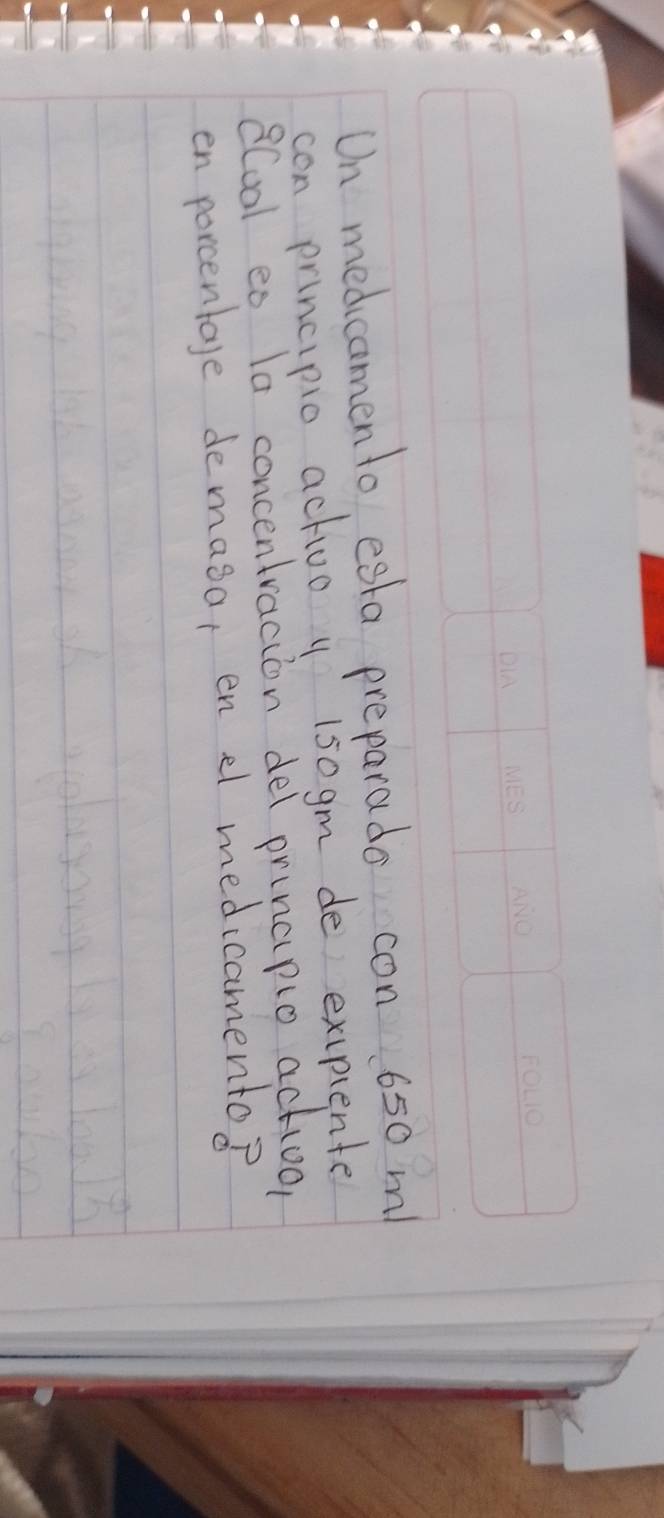 DIA MES AÑO FOLIO
Un medicamento esta preparado con 650 ml
con principio activo y 150gm de exipiente
¿Cual es la concentración del principio activo,
en porcentaje de masa, en el medicamento?